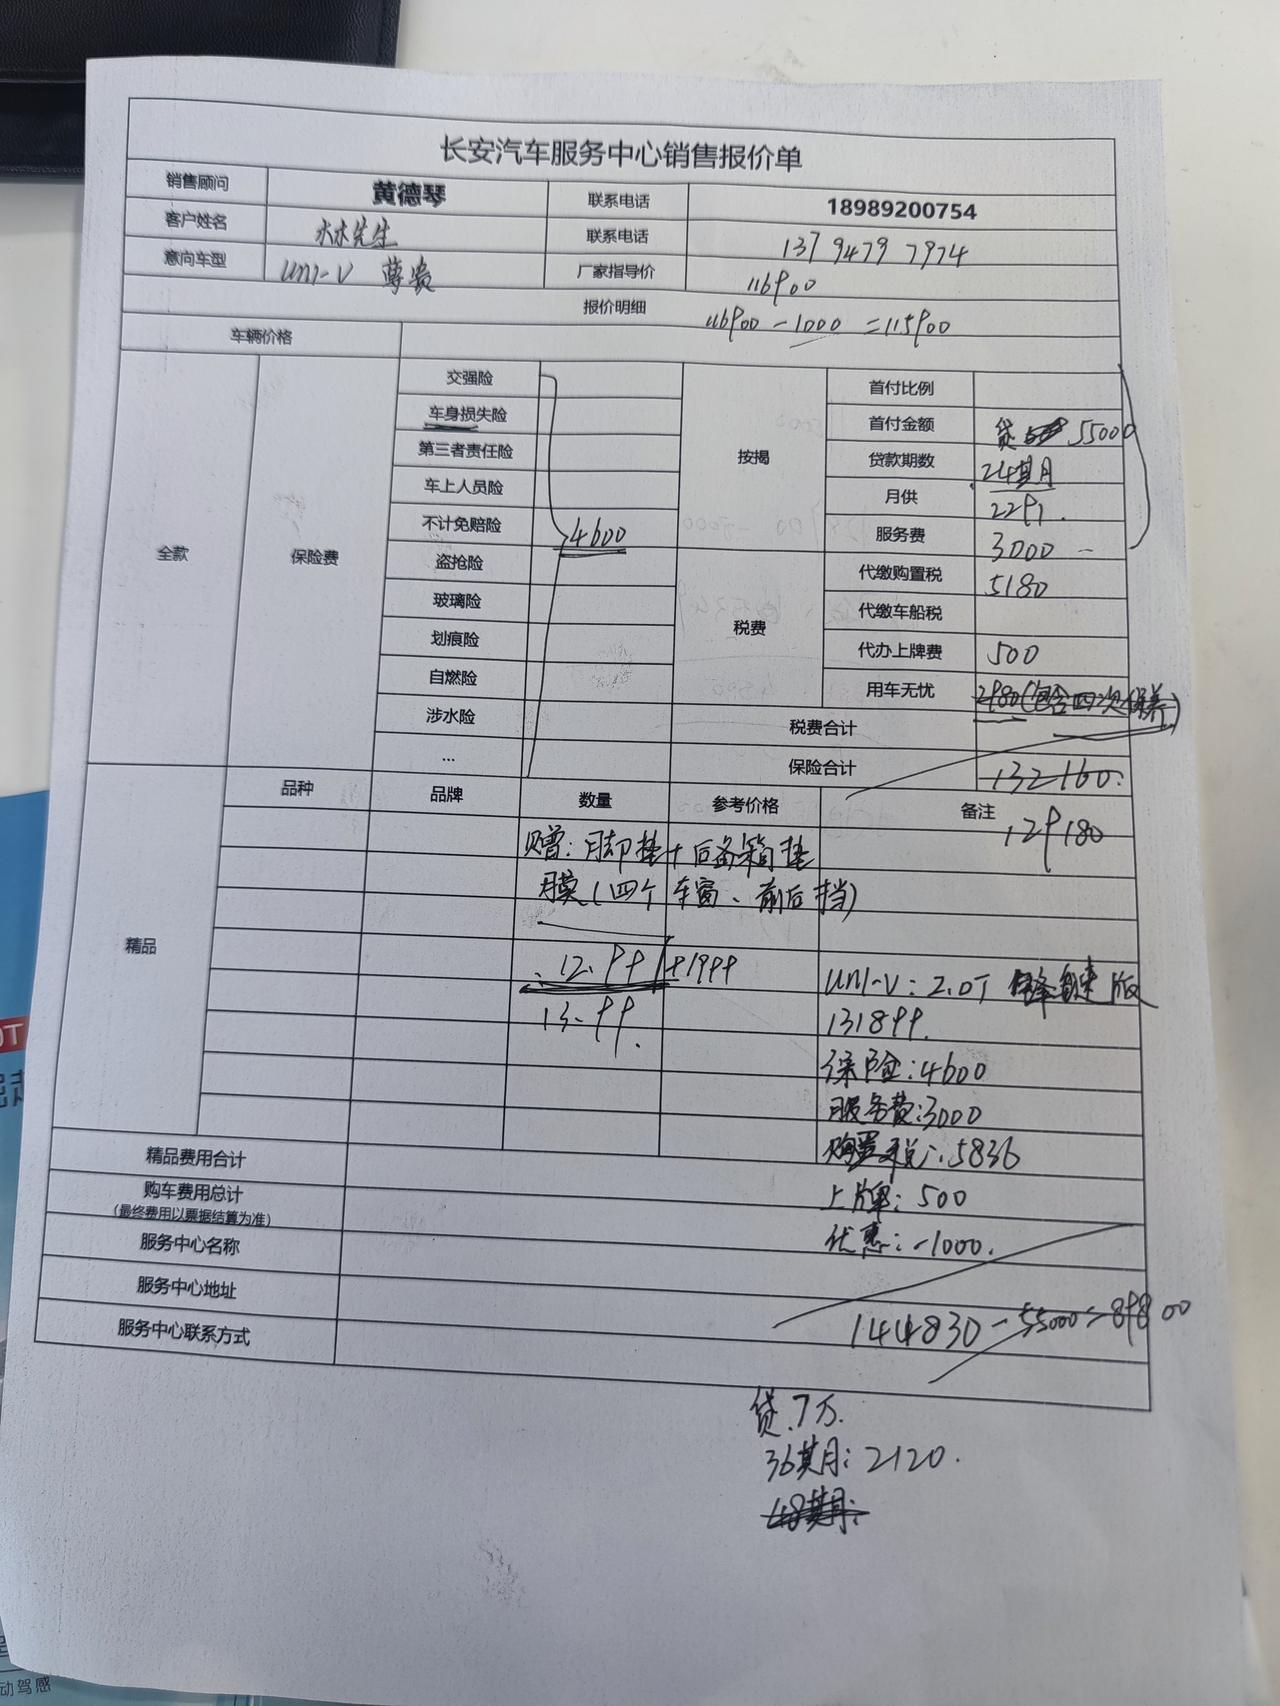 长安汽车服务中心销售报价单
销售顾问 黄德琴 联系电话 18989200754
客户姓名 林先生 联系电话 137 9479 7974
意向车型 UNI-V 尊贵 厂家指导价 116900
报价明细
车辆价格 116900-1000=115900
全款
保险费
交强险
车身损失险
第三者责任险
车上人员险
不计免赔险
盗抢险
玻璃险
划痕险
自燃险
涉水险
...
4600
按揭
首付比例
首付金额 贷 55000
贷款期数 24期
月供 2291.
服务费 3000
税费
代缴购置税 5180
代缴车船税
代办上牌费 500
用车无忧 2980(包含四次保养)
税费合计
保险合计 132160.
129180
精品
品种 品牌 数量 参考价格 备注
赠:脚垫+后备箱垫
膜(四个车窗、前后挡)
12.99 +1999
13.99.
UNI-V:2.0T 版
131899.
保险:4600
服务费:3000
购置税:5836
上牌:500
优惠:-1000.
精品费用合计
购车费用总计
(最终费用以票据结算为准)
服务中心名称
服务中心地址
服务中心联系方式
144830-55000=89800
贷.7万.
36期:2120.
48期:
动驾感